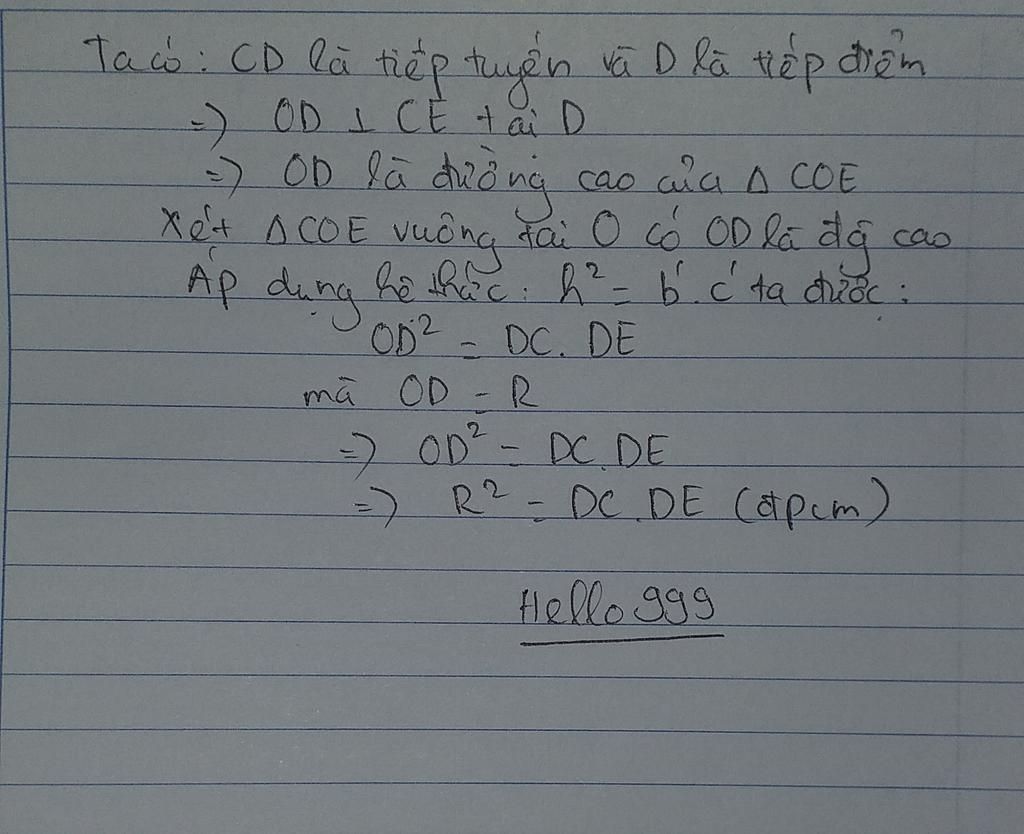 Ta có: CD là tiếp tuyến và D là tiếp điểm
=> OD ⊥ CE tại D
=> OD là đường cao của Δ COE
Xét Δ COE vuông tại O có OD là đg cao
Áp dụng hệ thức: h² = b'.c' ta được:
OD² = DC. DE
mà OD = R
=> OD² = DC. DE
=> R² = DC. DE (đpcm)
Hello 999